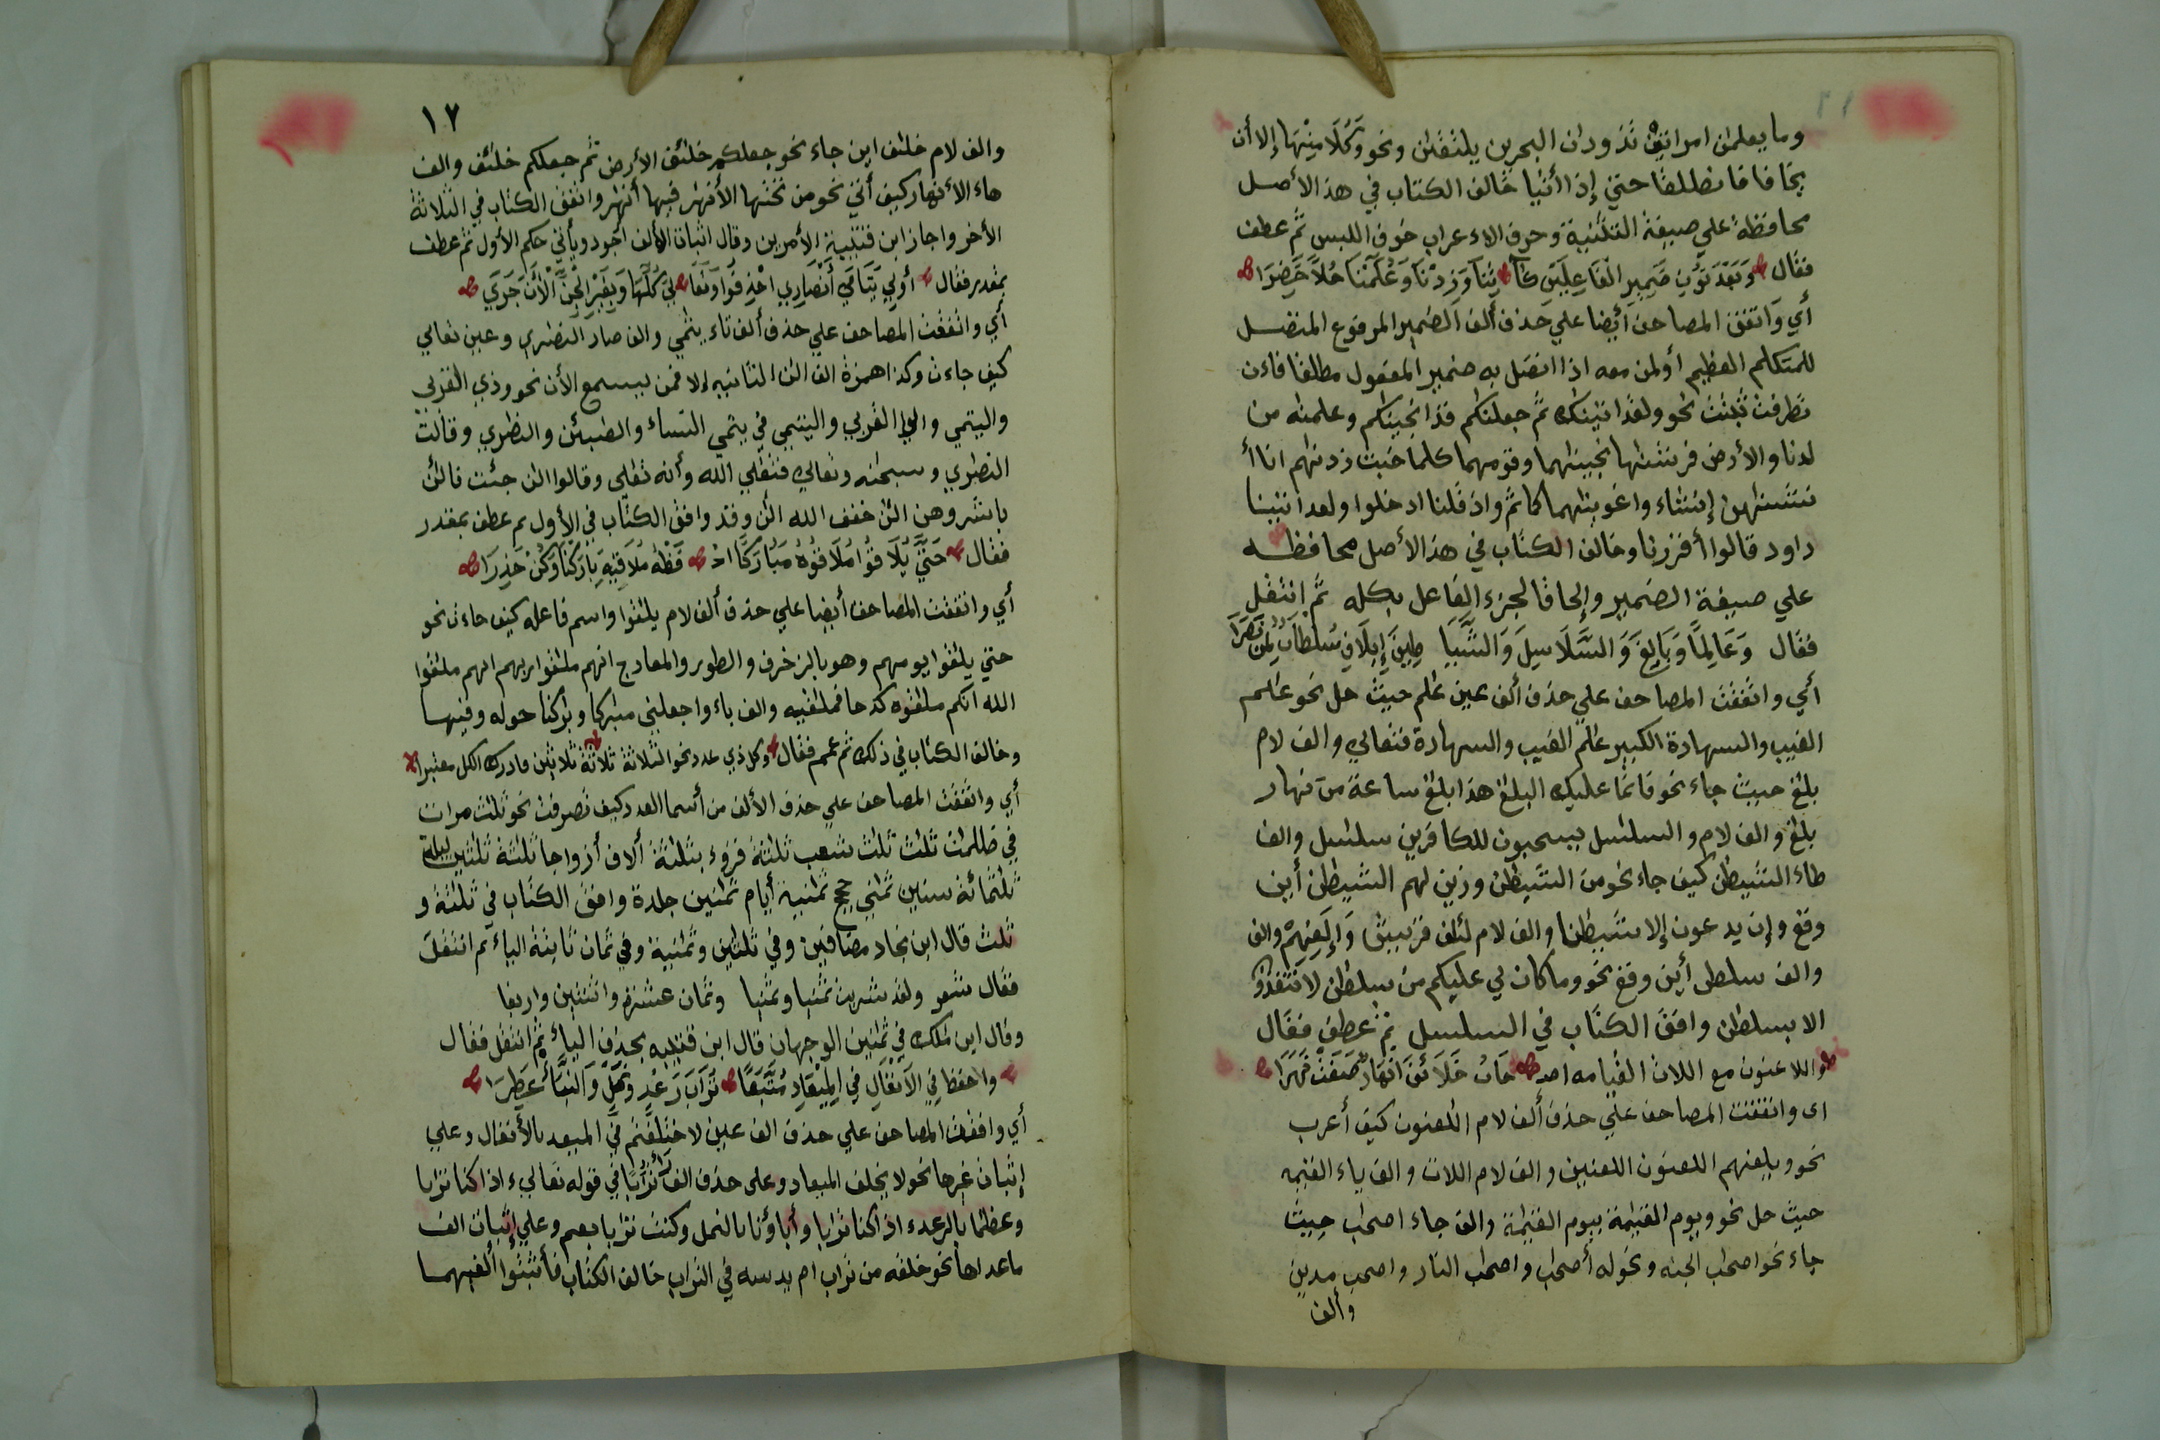 وما يعلمٰن امراتين تذودان البحرين يلتقيٰن ونحو وكلا منها إلا أن
يخافا فانطلقا حتي إذا أتيا خالف الكتاب في هذ الأصل
محافظة علي صيغة التثنية وحرف الاعراب خوف اللبس ثم عطف
فقال وبعد نون ضمير الفاعلين كآ تينا وزدنا وعلمنا حلا خضرا
أي واتفق المصاحف أيضا علي حذف ألف الضمير المرفوع المتصل
للمتكلم العظيم أولمن معه اذا اتصل به ضمير المفعول مطلقا فاءن
تطرفت ثبتت نحو ولقد اتينٰك ثم جعلنٰكم قد انجينٰكم وعلمنٰه من
لدنا والأرض فرشنٰها نجينٰهما وقومهما كلما خبت زدنٰهم انا أ
نشئنٰهن إنشاء واغوينٰهما كما ثم واذ قلنا ادخلوا ولقد اتينا
داود قالوا أقررنا وخالف الكتاب في هذ الأصل محافظه
علي صيغة الضمير وإلحاقا لجزء الفاعل بكله ثم انتقل
فقال وعالما وبالغ والسلاسيل والشيا طين إيلاف سلطان لمن نصرا
أي واتفقت المصاحف علي حذف ألف عين علٰم حيث حل نحو علٰم
الغيب والشهادة الكبير علٰم الغيب والشهادة فتعالي والف لام
بلٰغ حيث جاء نحو فانما عليك البلٰغ هذا بلٰغ ساعة من نهار
بلٰغ والف لام والسلٰسل يسحبون للكافرين سلٰسل والف
طاء الشيطٰن كيف جاء نحو من الشيطٰن وزين لهم الشيطٰن أين
وقع وإن يدعون إلا شيطٰنا والف لام لئلٰف قريش وإلٰفهم والف
والف سلطٰن أين وقع نحو وما كان لي عليكم من سلطٰن لا تنفذون
الا بسلطٰن وافق الكتاب في السلٰسل ثم عطف فقال
واللاعنون مع اللات القيامه اصـ حاب خلائف انهار صفت نهرا
اى واتفقت المصاحف علي حذف ألف لام اللٰعنون كيف أعرب
نحو ويلعنهم اللٰعنون اللٰعنين والف لام اللات والف ياء القيٰمه
حيث حل نحو ويوم القيٰمة بيوم القيٰمة والف حاء اصحٰب حيث
جاء نحو اصحٰب الجنه ونحو له أصحٰب واصحٰب النار واصحٰب مدين
وألف
١٧
والف لام خلٰئف اين جاء نحو جعلكم خلٰئف الأرض ثم جعلكم خلٰئف والف
هاء الأنهار كيف أتي نحو من تحتها الأنهٰر فيها أنهٰر واتفق الكتاب في الثلاثة
الأخر واجاز ابن قتيبة الأمرين وقال اثبات الألف اجود ويأتي حكم الأول ثم عطف
بمقدر فقال أولي يتامي أنصاري احذفوا وتعا لي كلها وبغير الجن الأن جري
أي واتفقت المصاحف علي حذف ألف تاء يتٰمي والف صاد النصٰري وعين تعٰالي
كيف جاءت وكذا همزة الف الٰن الثانيه إلا فمن يستمع الأن نحو وذي القربي
واليتٰمي والي القربي واليتٰمي في يتٰمي النساء والصٰبئن والنصٰري وقالت
النصٰري وسبحنه وتعٰالي فتعٰلي الله وأنه تعٰلي وقالوا الٰن جئت فالٰن
باشروهن الٰن خفف الله الٰن وقد وافق الكتاب في الأول ثم عطف بمقدر
فقال حتي يلاقوا ملاقوه مباركا احـ فظه ملاقيه باركنا وكن حذرا
أي واتفقت المصاحف أيضا علي حذف ألف لام يلٰقوا واسم فاعله كيف جاءت نحو
حتي يلٰقوا يومهم وهو بالزخرف والطور والمعارج انهم ملٰقوا ربهم انهم ملٰقوا
الله انكم ملٰقوه كدحا فملٰقيه والف باء واجعلني مبٰركا وبٰركنا حوله وفيها
وخالف الكتاب في ذلك ثم عمم فقال وكل ذي عدد نحو الثلاثة ثلاثة ثلاثين فادرك الكل معتبرا
أي واتفقت المصاحف علي حذف الألف من أسما العدد كيف تصرفت نحو ثلٰث مرات
في ظلمٰت ثلٰث ثلٰث شعب ثلٰثة قروء بثلٰثة ألاف أزواجا ثلٰثة ثلٰثين ليلة
ثلٰثمائة سنين ثمٰني حجج ثمٰنية أيام ثمٰنين جلدة وافق الكتاب في ثلٰثة و
ثلٰث قال ابن بخاد مضافين وفي ثلٰثين وثمٰنية وفي ثمان ثابتة الياء ثم انتقل
فقال شعر ولقد شربت ثمٰنيا وثمٰنيا وثمان عشرة واثنتين واربعا
وقال ابن ملٰك في ثمٰنين الوجهان قال ابن قتيبه بحذف الياء ثم انتقل فقال
واحفظ في الأنفال في الميعاد متبعا تراب رعد ونمل والنبأ عطرا
أي واتفقت المصاحف علي حذف الف عين لاختلفتم في الميعٰد بالأنفال وعلي
إثبات غيرها نحو لا يخلف الميعاد وعلى حذف الف ترٰبا في قوله تعالي ء اذا كنا ترٰبا
وعظما بالرعد ء اذا كنا ترٰبا وأباؤنا بالنمل وكنت ترٰبا بعم وعلي إثبات الف
ما عداها نحو خلقه من تراب ام يدسه في التراب خالف الكتاب فأثبتوا ألفيهما